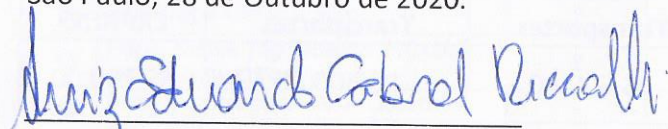 São Paulo, 28 de Outubro de 2020.
Luiz Eduardo Cabral